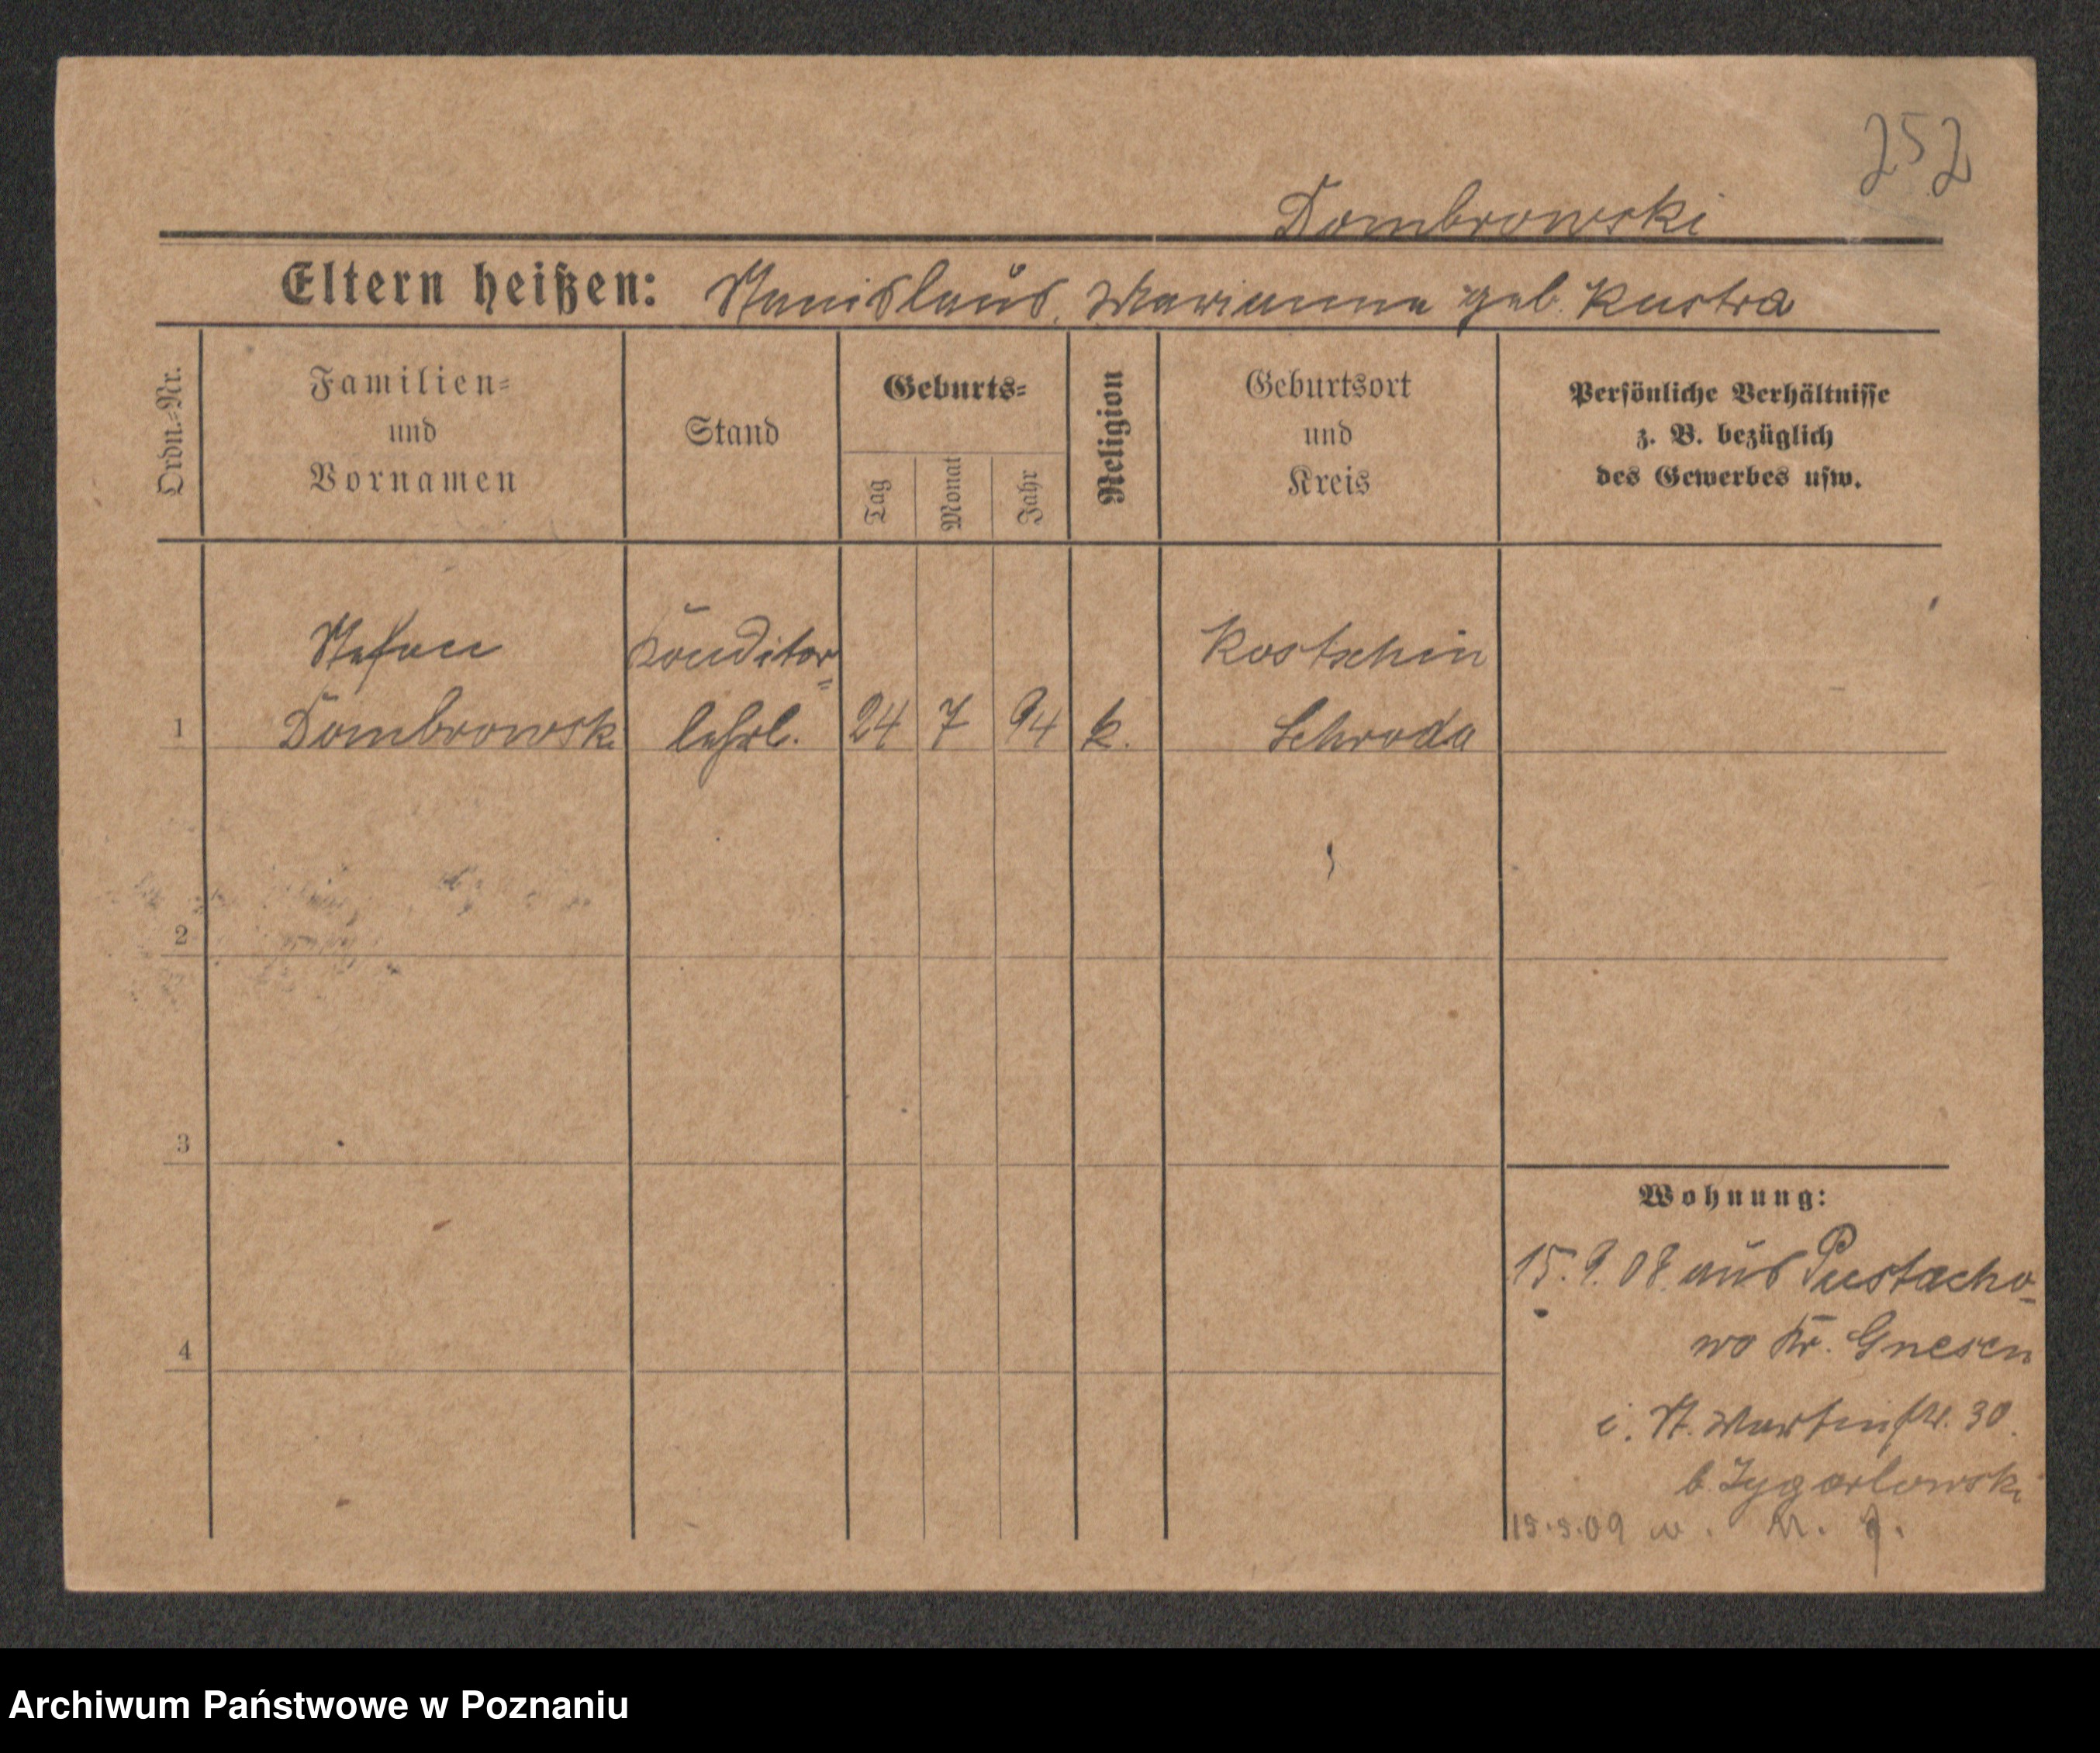 252
Dombrowski
Eltern heißen: Stanislaus, Marianna geb. Kustra
Ordn.-Nr.
Familien-
und
Vornamen
Stand
Geburts-
Tag
Monat
Jahr
Religion
Geburtsort
und
Kreis
Persönliche Verhältnisse
z. B. bezüglich
des Gewerbes usw.
Stefan Konditor- Kostschin
1 Dombrowski lehrl. 24 7 94 k. Schroda
2
3
4
Wohnung:
15.9.08 aus Pustacho-
wo Kr. Gnesen
i. St. Martinstr. 30.
b. Zygarlowski
15.5.09
Archiwum Państwowe w Poznaniu